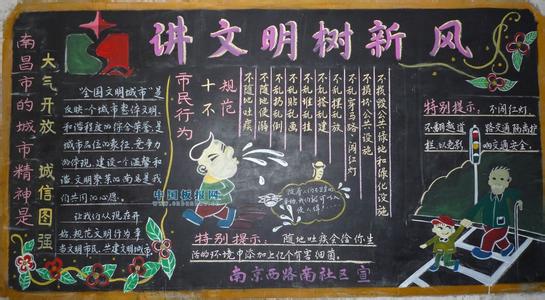 讲文明树新风
南昌市的城市精神是
大气开放 诚信图强
“全国文明城市”是
反映一个城市整体文明
和谐程度的综合荣誉,是
城市在位的责任,竞争
力的体现,建设一个温馨和
谐,文明繁荣的南昌是我
们共同的心愿。
让我们从现在开
始,规范文明行为争
当文明市民,共建文明城市
市民行为
十不
规范
不随地吐痰
不随地便溺
不乱扔乱倒
不乱贴乱画
不乱堆乱挂
不乱搭乱建
不乱摆乱放
不乱穿马路、闯红灯
不损坏公共设施
不毁设公共绿地和绿化设施
中国板报网
特别提示: 随地吐痰会给你生
活的环境中添加上亿个有害细菌
特别提示: 不闯红灯,
不翻越道路交通隔离护
栏,以免影响交通安全。
南京西路南社区宣